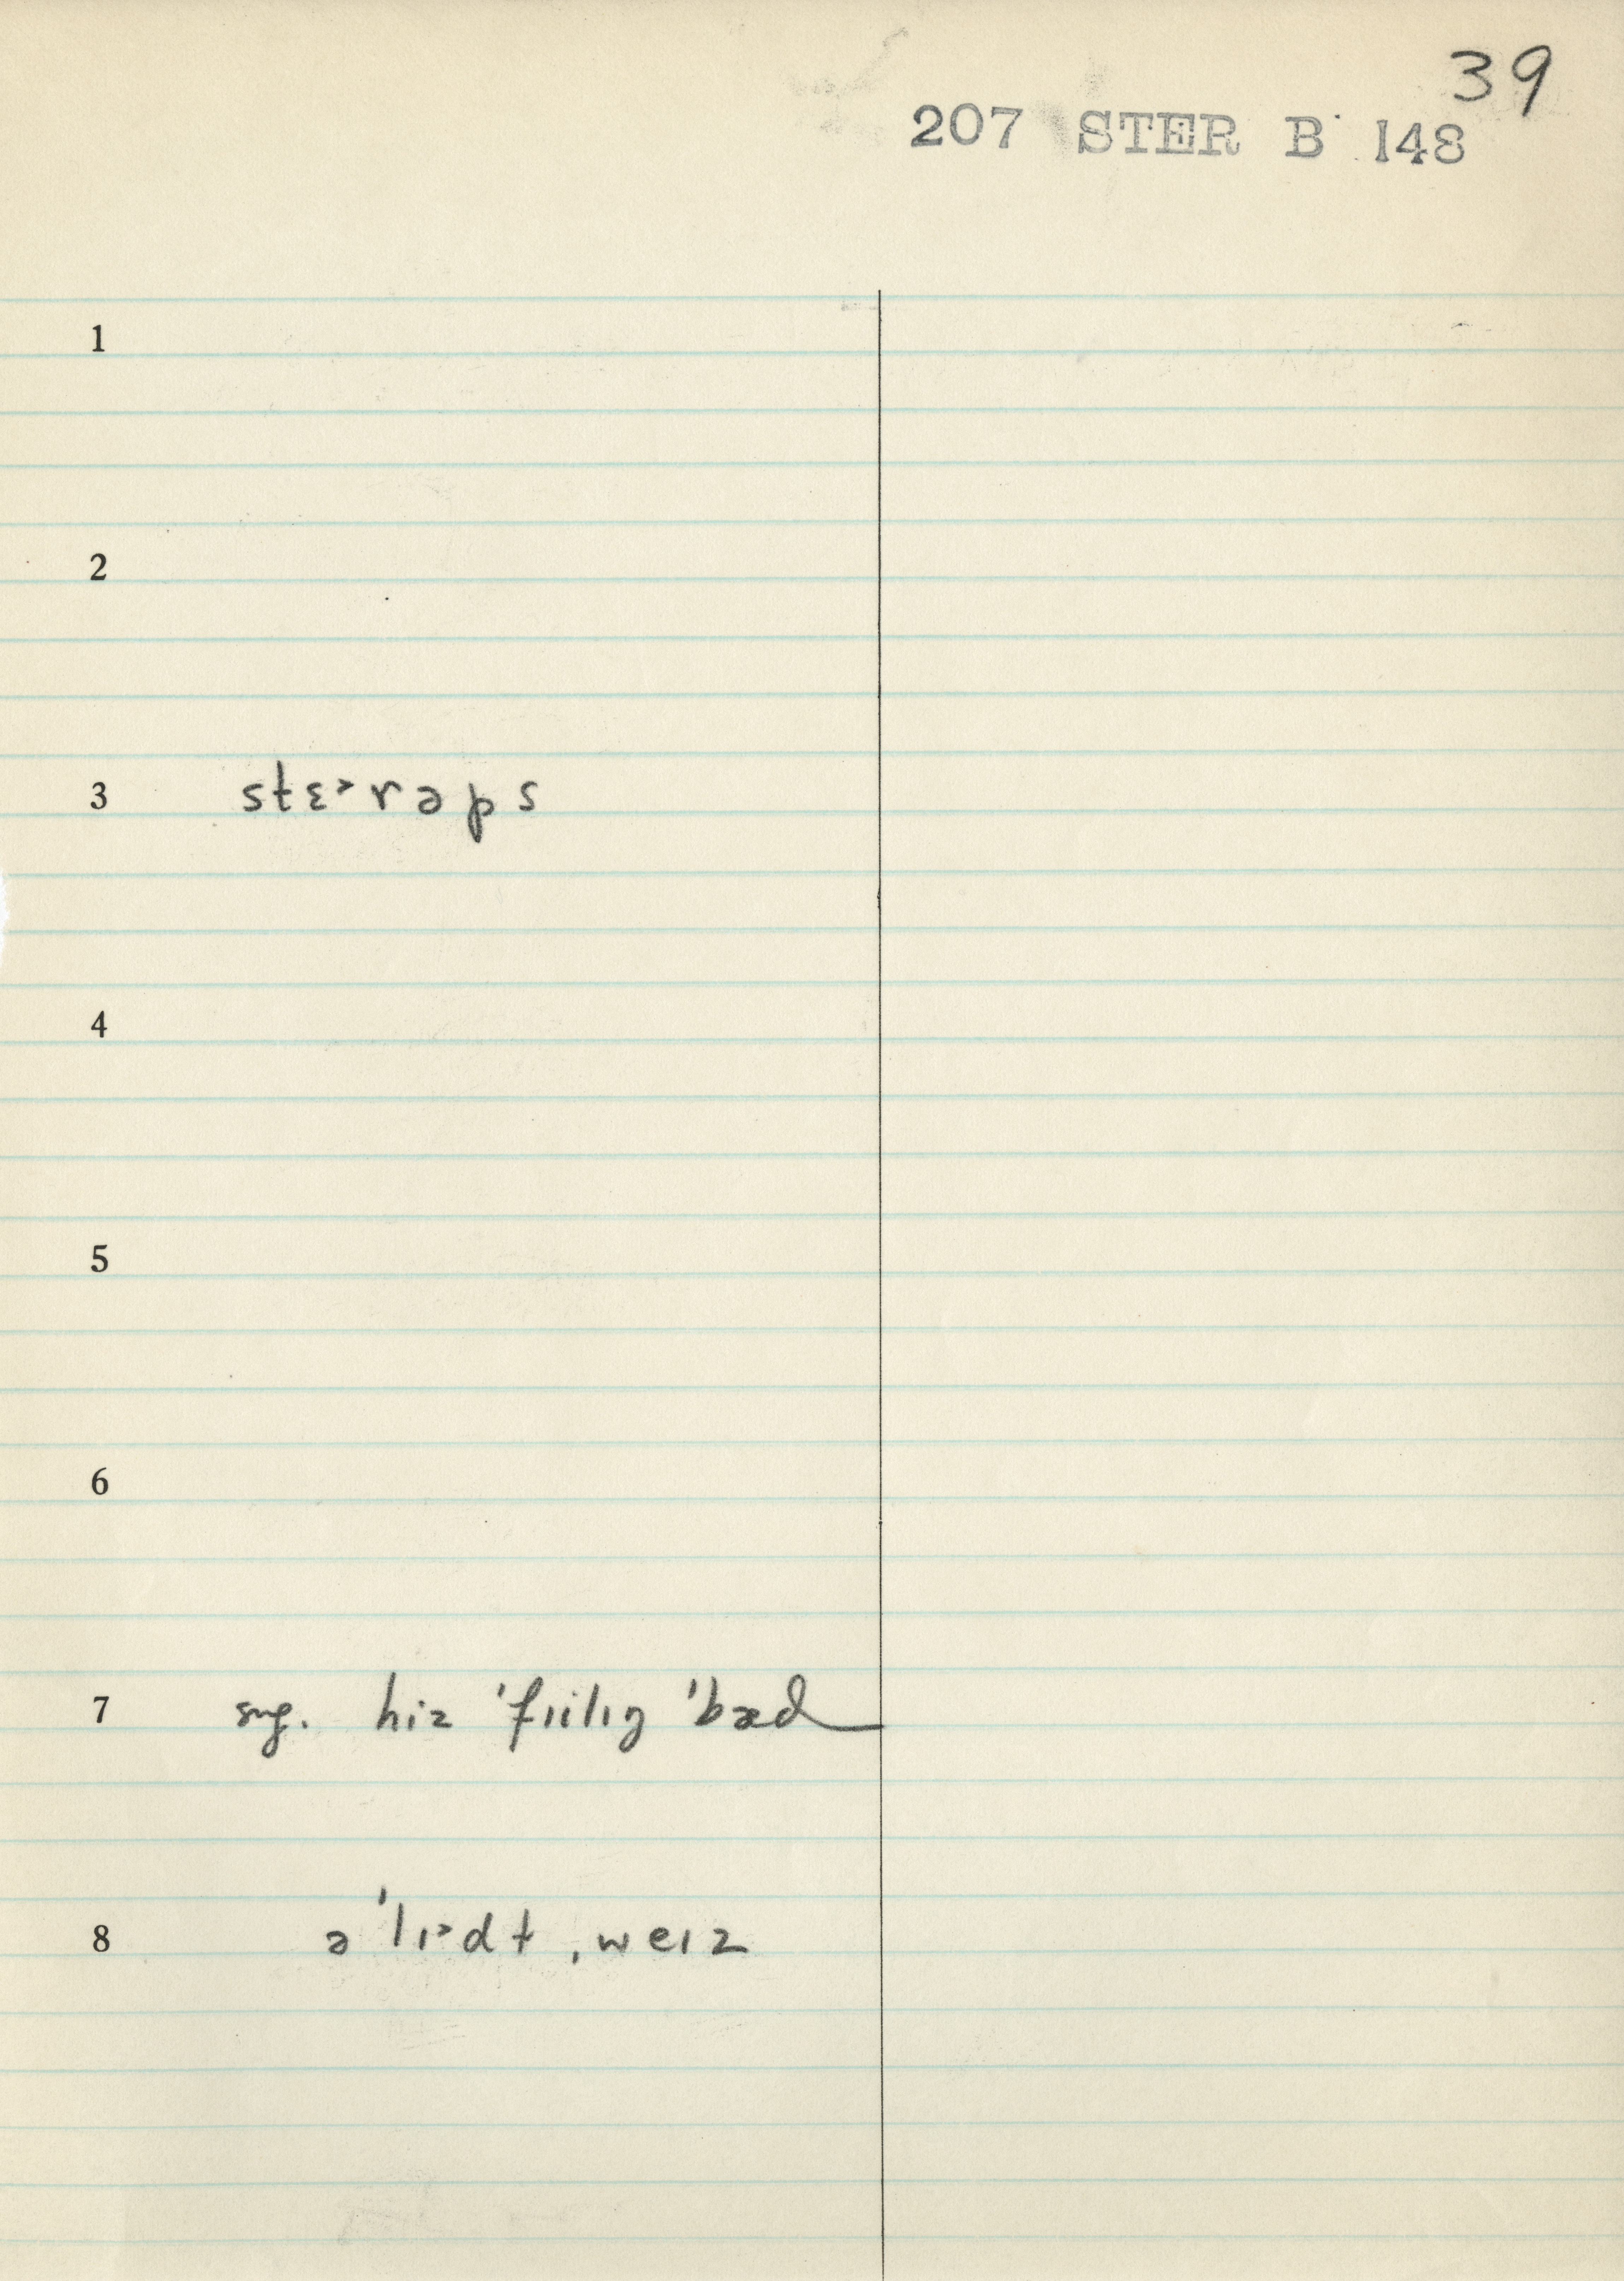 39
207 STER B 148
1
2
3 stɛ˃rəps
4
5
6
7 sug. hiz ˈfɪilɪŋ ˈbæd
8 əˈlɪ˃dt ˌweɪz